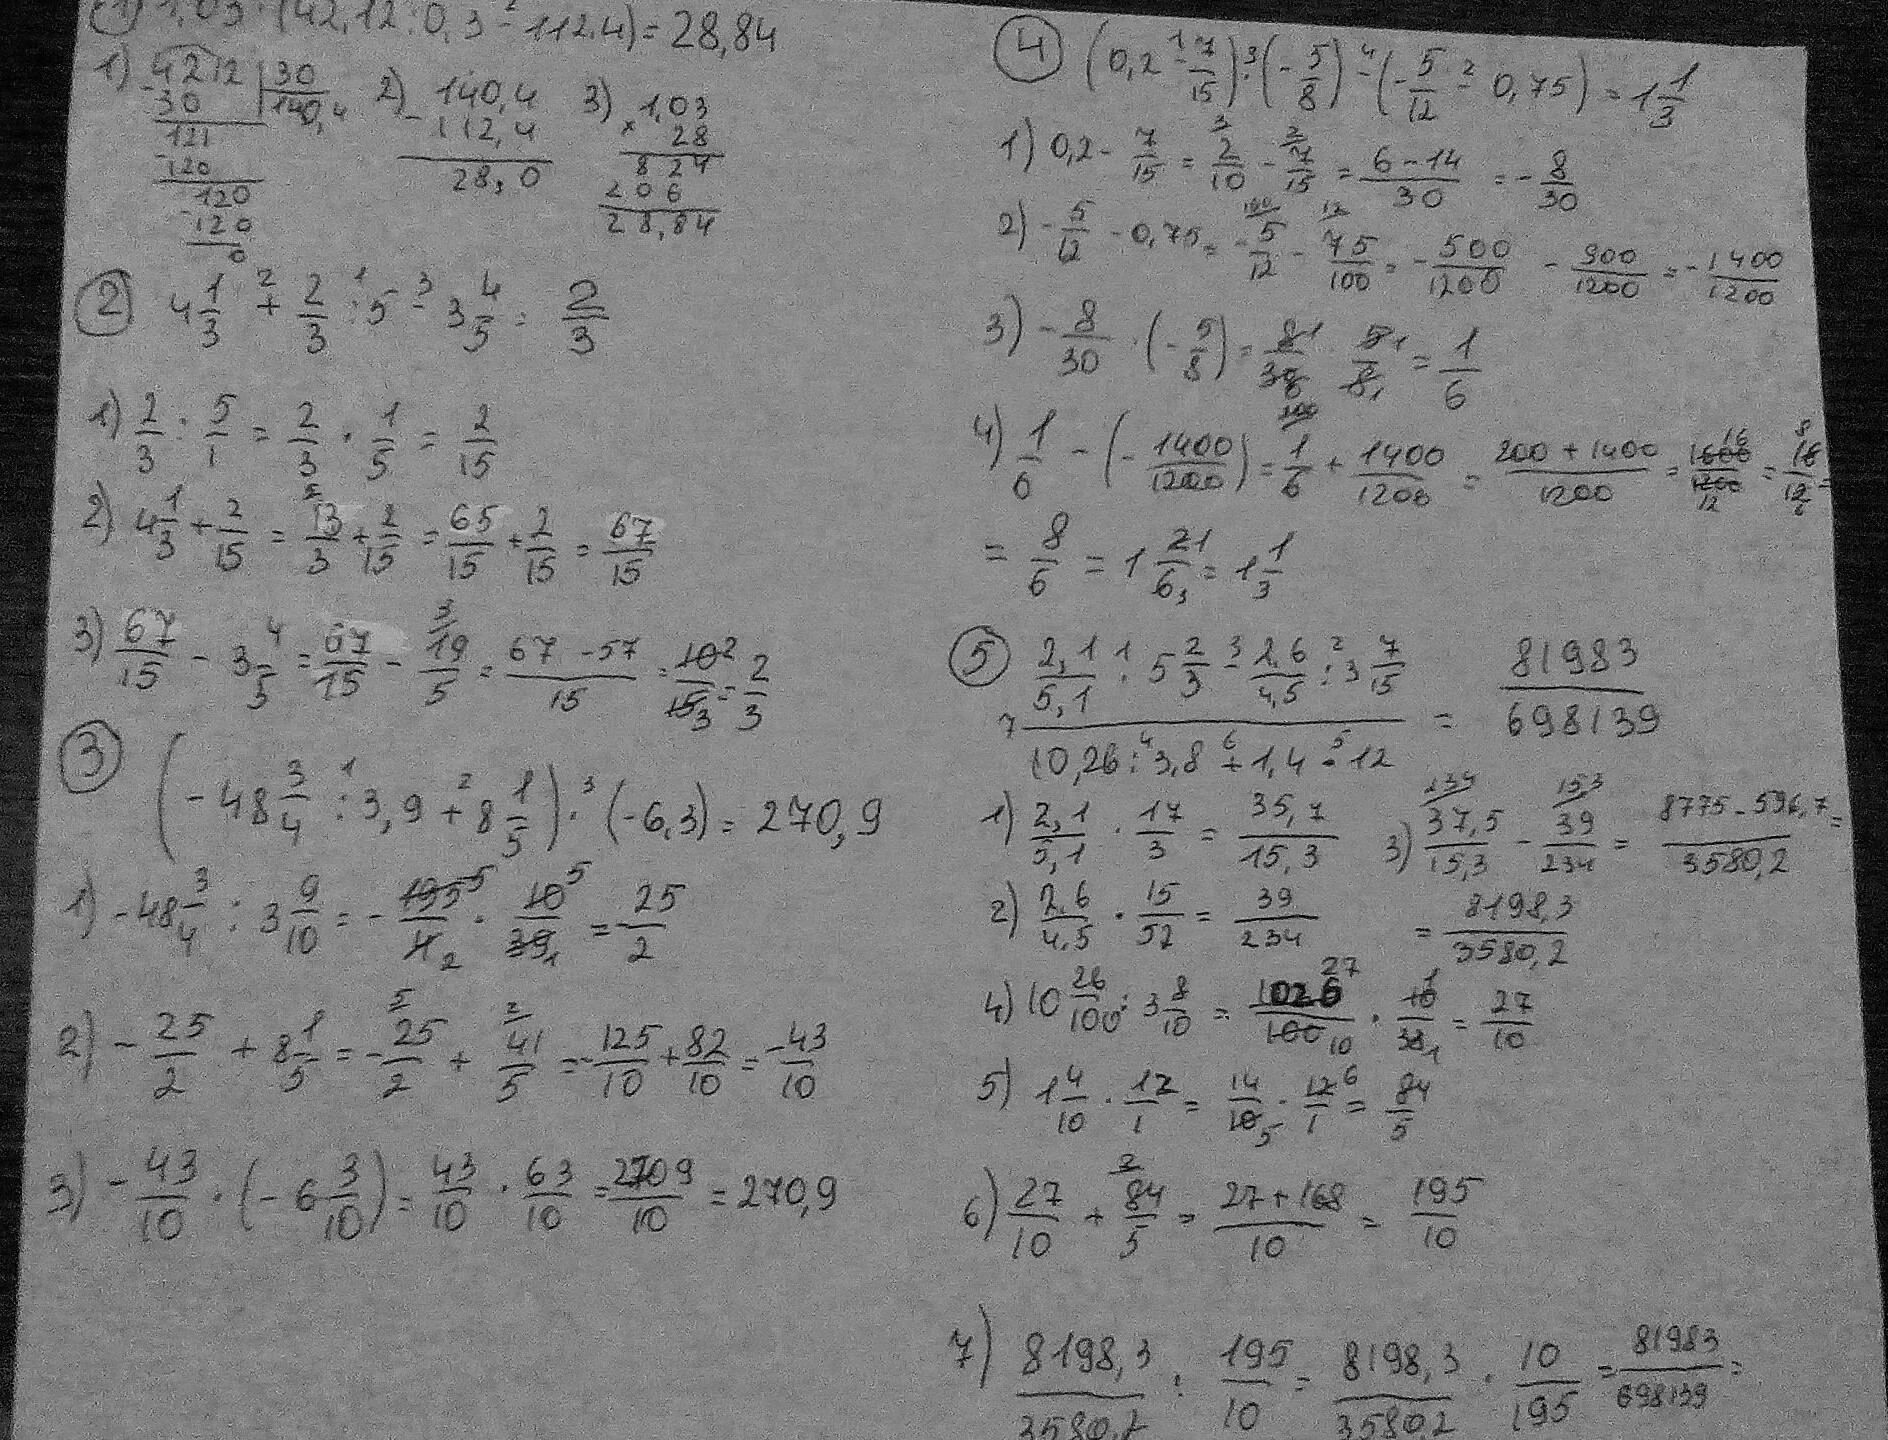 ① 1,03 · (42,12 : 0,3 - 112,4) = 28,84
1) 4212 | 30
30 140,4
121
-120
120
-120
0
2) 140,4
- 112,4
28,0
3) 1,03
× 28
824
206
28,84
② 4 1/3 + 2/3 : 5 - 3 4/5 = 2/3
1) 2/3 : 5/1 = 2/3 · 1/5 = 2/15
2) 4 1/3 + 2/15 = 13/3 + 2/15 = 65/15 + 2/15 = 67/15
3) 67/15 - 3 4/5 = 67/15 - 19/5 = 67-57/15 = 10/15 = 2/3
③ (-48 3/4 : 3,9 + 8 1/5) · (-6,3) = 270,9
1) -48 3/4 : 3 9/10 = - 195/4 · 10/39 = - 25/2
2) - 25/2 + 8 1/5 = - 25/2 + 41/5 = - 125/10 + 82/10 = -43/10
3) - 43/10 · (-6 3/10) = 43/10 · 63/10 = 2709/10 = 270,9
④ (0,2 - 7/15) · (- 5/8) - (- 5/12 - 0,75) = 1 1/3
1) 0,2 - 7/15 = 2/10 - 7/15 = 6-14/30 = - 8/30
2) - 5/12 - 0,75 = - 5/12 - 75/100 = - 500/1200 - 900/1200 = - 1400/1200
3) - 8/30 · (- 5/8) = 8/30 · 5/8 = 1/6
4) 1/6 - (- 1400/1200) = 1/6 + 1400/1200 = 200+1400/1200 = 1600/1200 = 16/12 =
= 8/6 = 1 2/6 = 1 1/3
⑤ 2,1/5,1 : 5 2/3 - 2,6/4,5 : 3 7/15 = 81983/698139
10,26 : 3,8 + 1,4 · 12
1) 2,1/5,1 · 17/3 = 35,7/15,3
3) 37,5/15,3 - 39/234 = 8775-596,7/3580,2 =
2) 2,6/4,5 · 15/52 = 39/234
= 8198,3/3580,2
4) 10 26/100 : 3 8/10 = 1026/100 · 10/38 = 27/10
5) 1 4/10 · 12/1 = 14/10 · 12/1 = 84/5
6) 27/10 + 84/5 = 27+168/10 = 195/10
7) 8198,3/3580,2 : 195/10 = 8198,3/3580,2 · 10/195 = 81983/698139 =